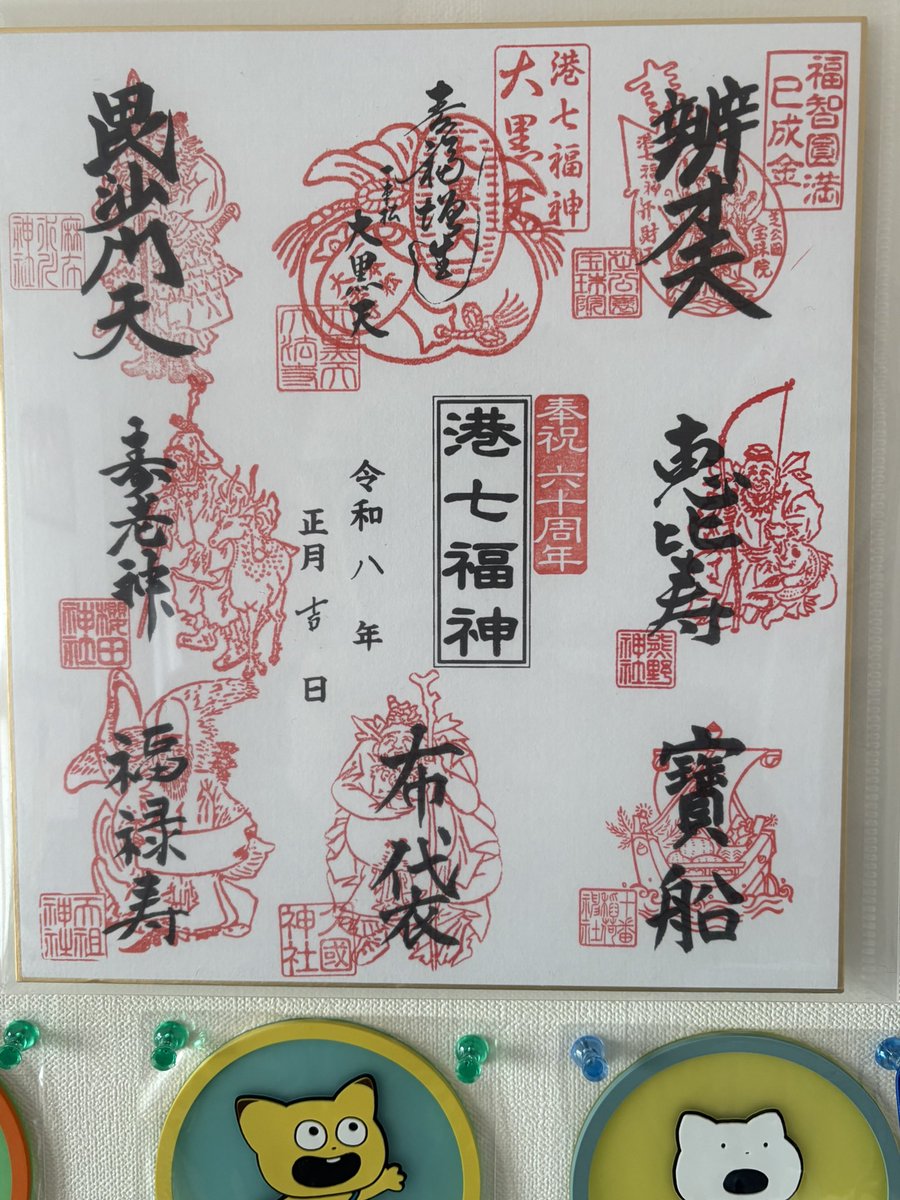 福智圓満
巳成金
辨才天
芝公園
宝珠院
港七福神
大黒天
寿福増生
大黒天
毘沙門天
恵比寿
熊野
神社
奉祝六十周年
港七福神
令和八年
正月吉日
寿老神
櫻田
神社
寶船
十番
稲荷
神社
布袋
久國
神社
福禄寿
天祖
神社